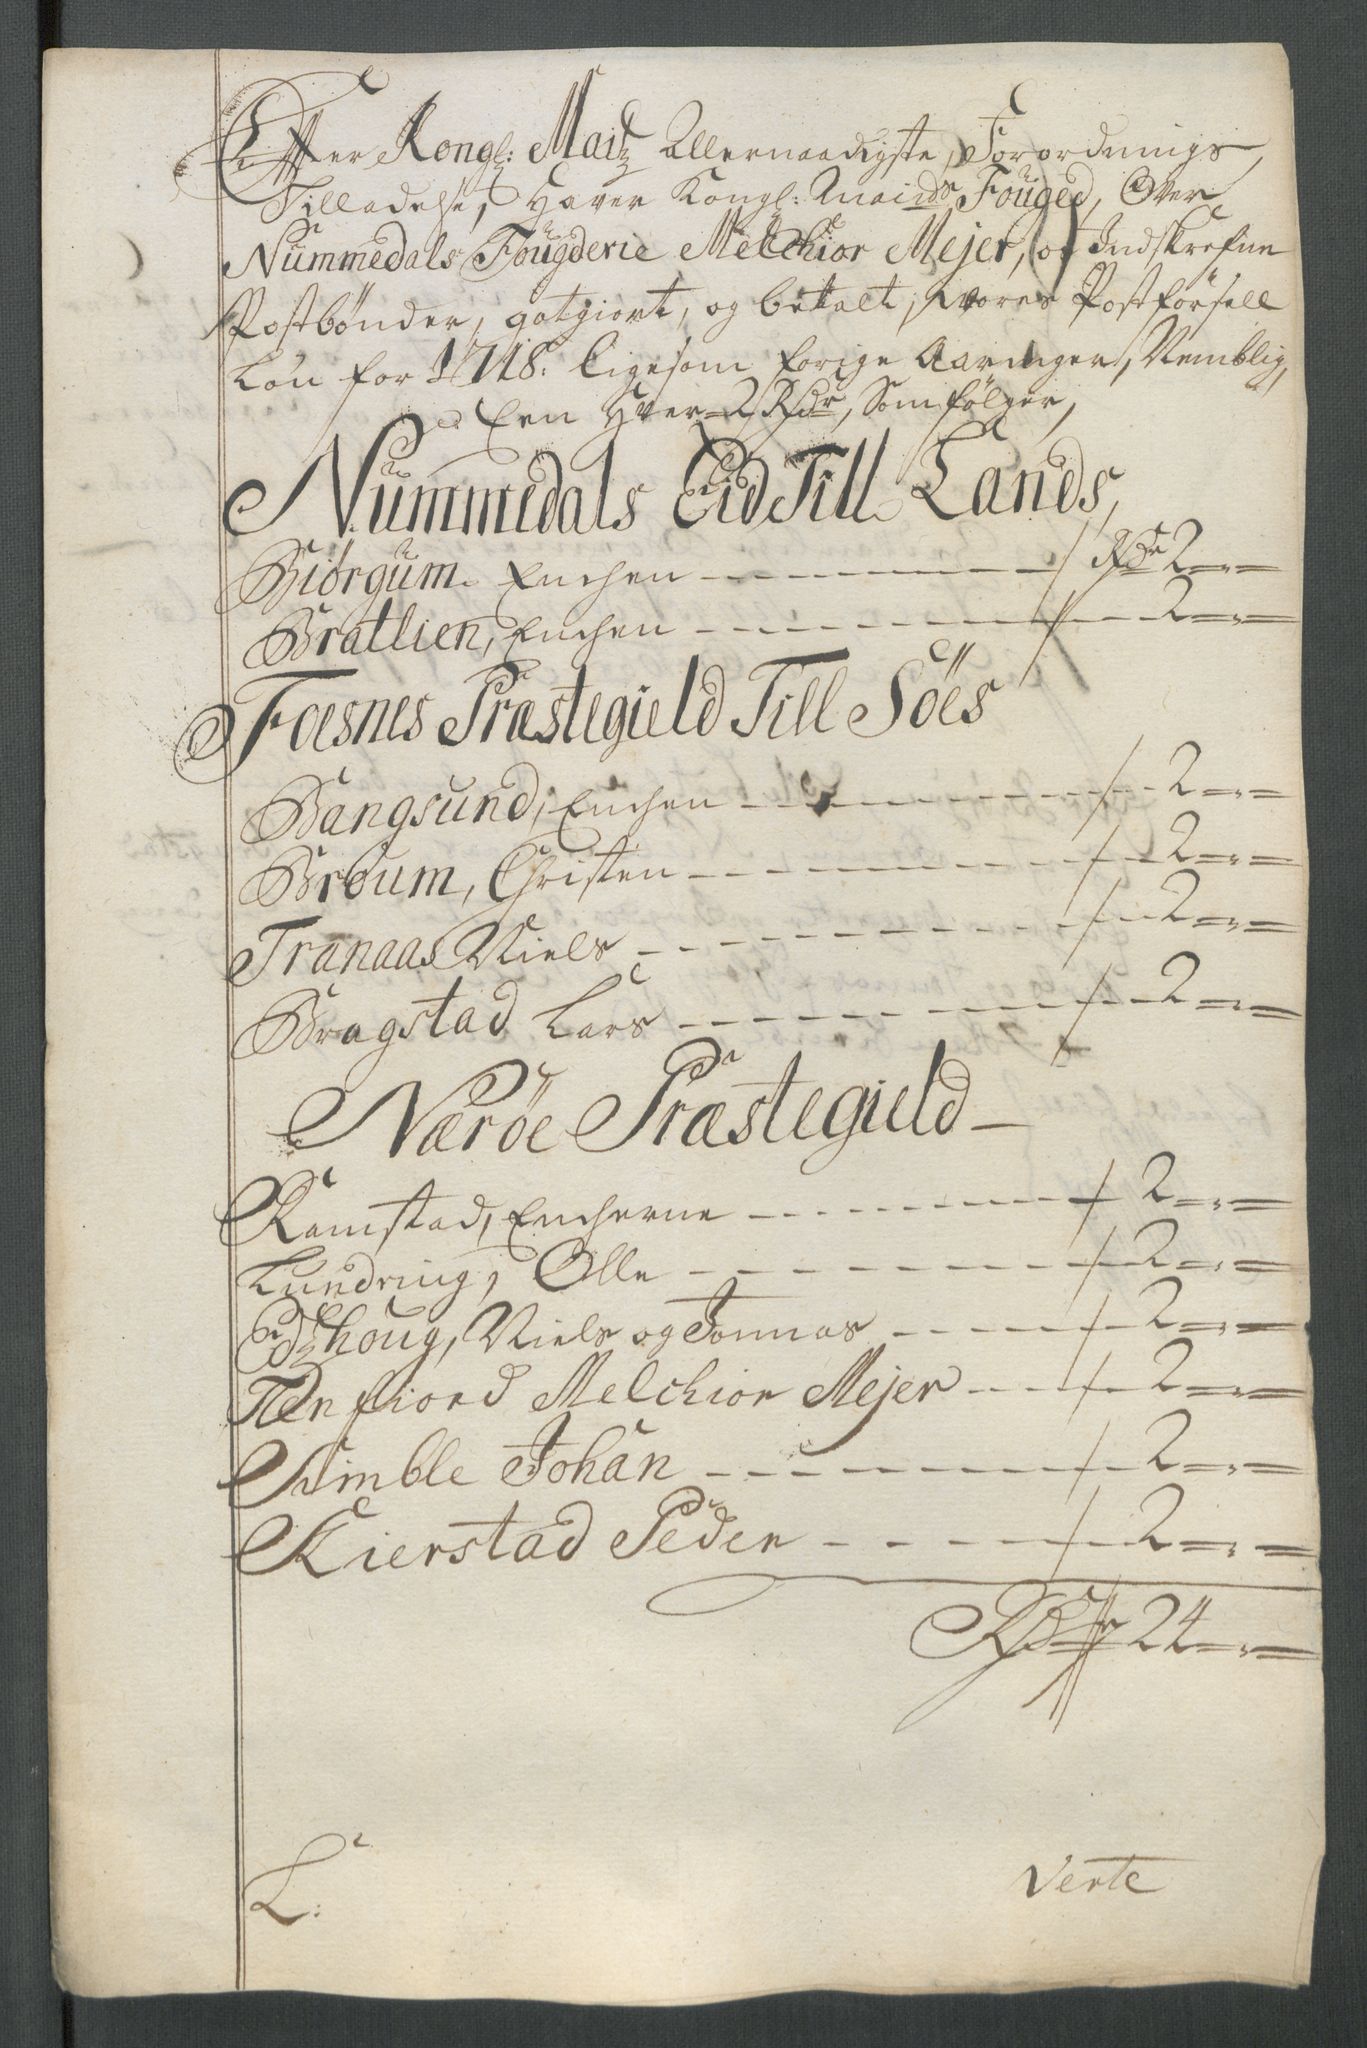 Effter Kongl: Maitz Allernaadigste Forordnings,
Tilladelse, Haver Kongl: Maitds Fouged, Over
Nummedals Fougderie Melchior Mejer, os Indskrefne
Postbønder, gotgiort, og betalt, vores Postførsell
Løn for 1718. Ligesom forige Aaringer, Nemblig,
Een Hver 2 Rdr, Som følger,
Nummedals Eid Till Lands,
Biørgum. Enchen / Rdr 2
Bratlien, Enchen / 2
Foesnes Præstegield Till Söes
Bangsund, Enchen / 2
Brøum, Christen / 2
Tranaas Niels / 2
Bragstad Lars / 2
Nærøe Præstegield
Ramstad, Encherne / 2
Lundring, Olle / 2
Edzhoug, Niels og Tommas / 2
Terfiord Melchior Mejer / 2
Simble Johan / 2
Kierstad Peder / 2
Rdr 24
L:
Verte